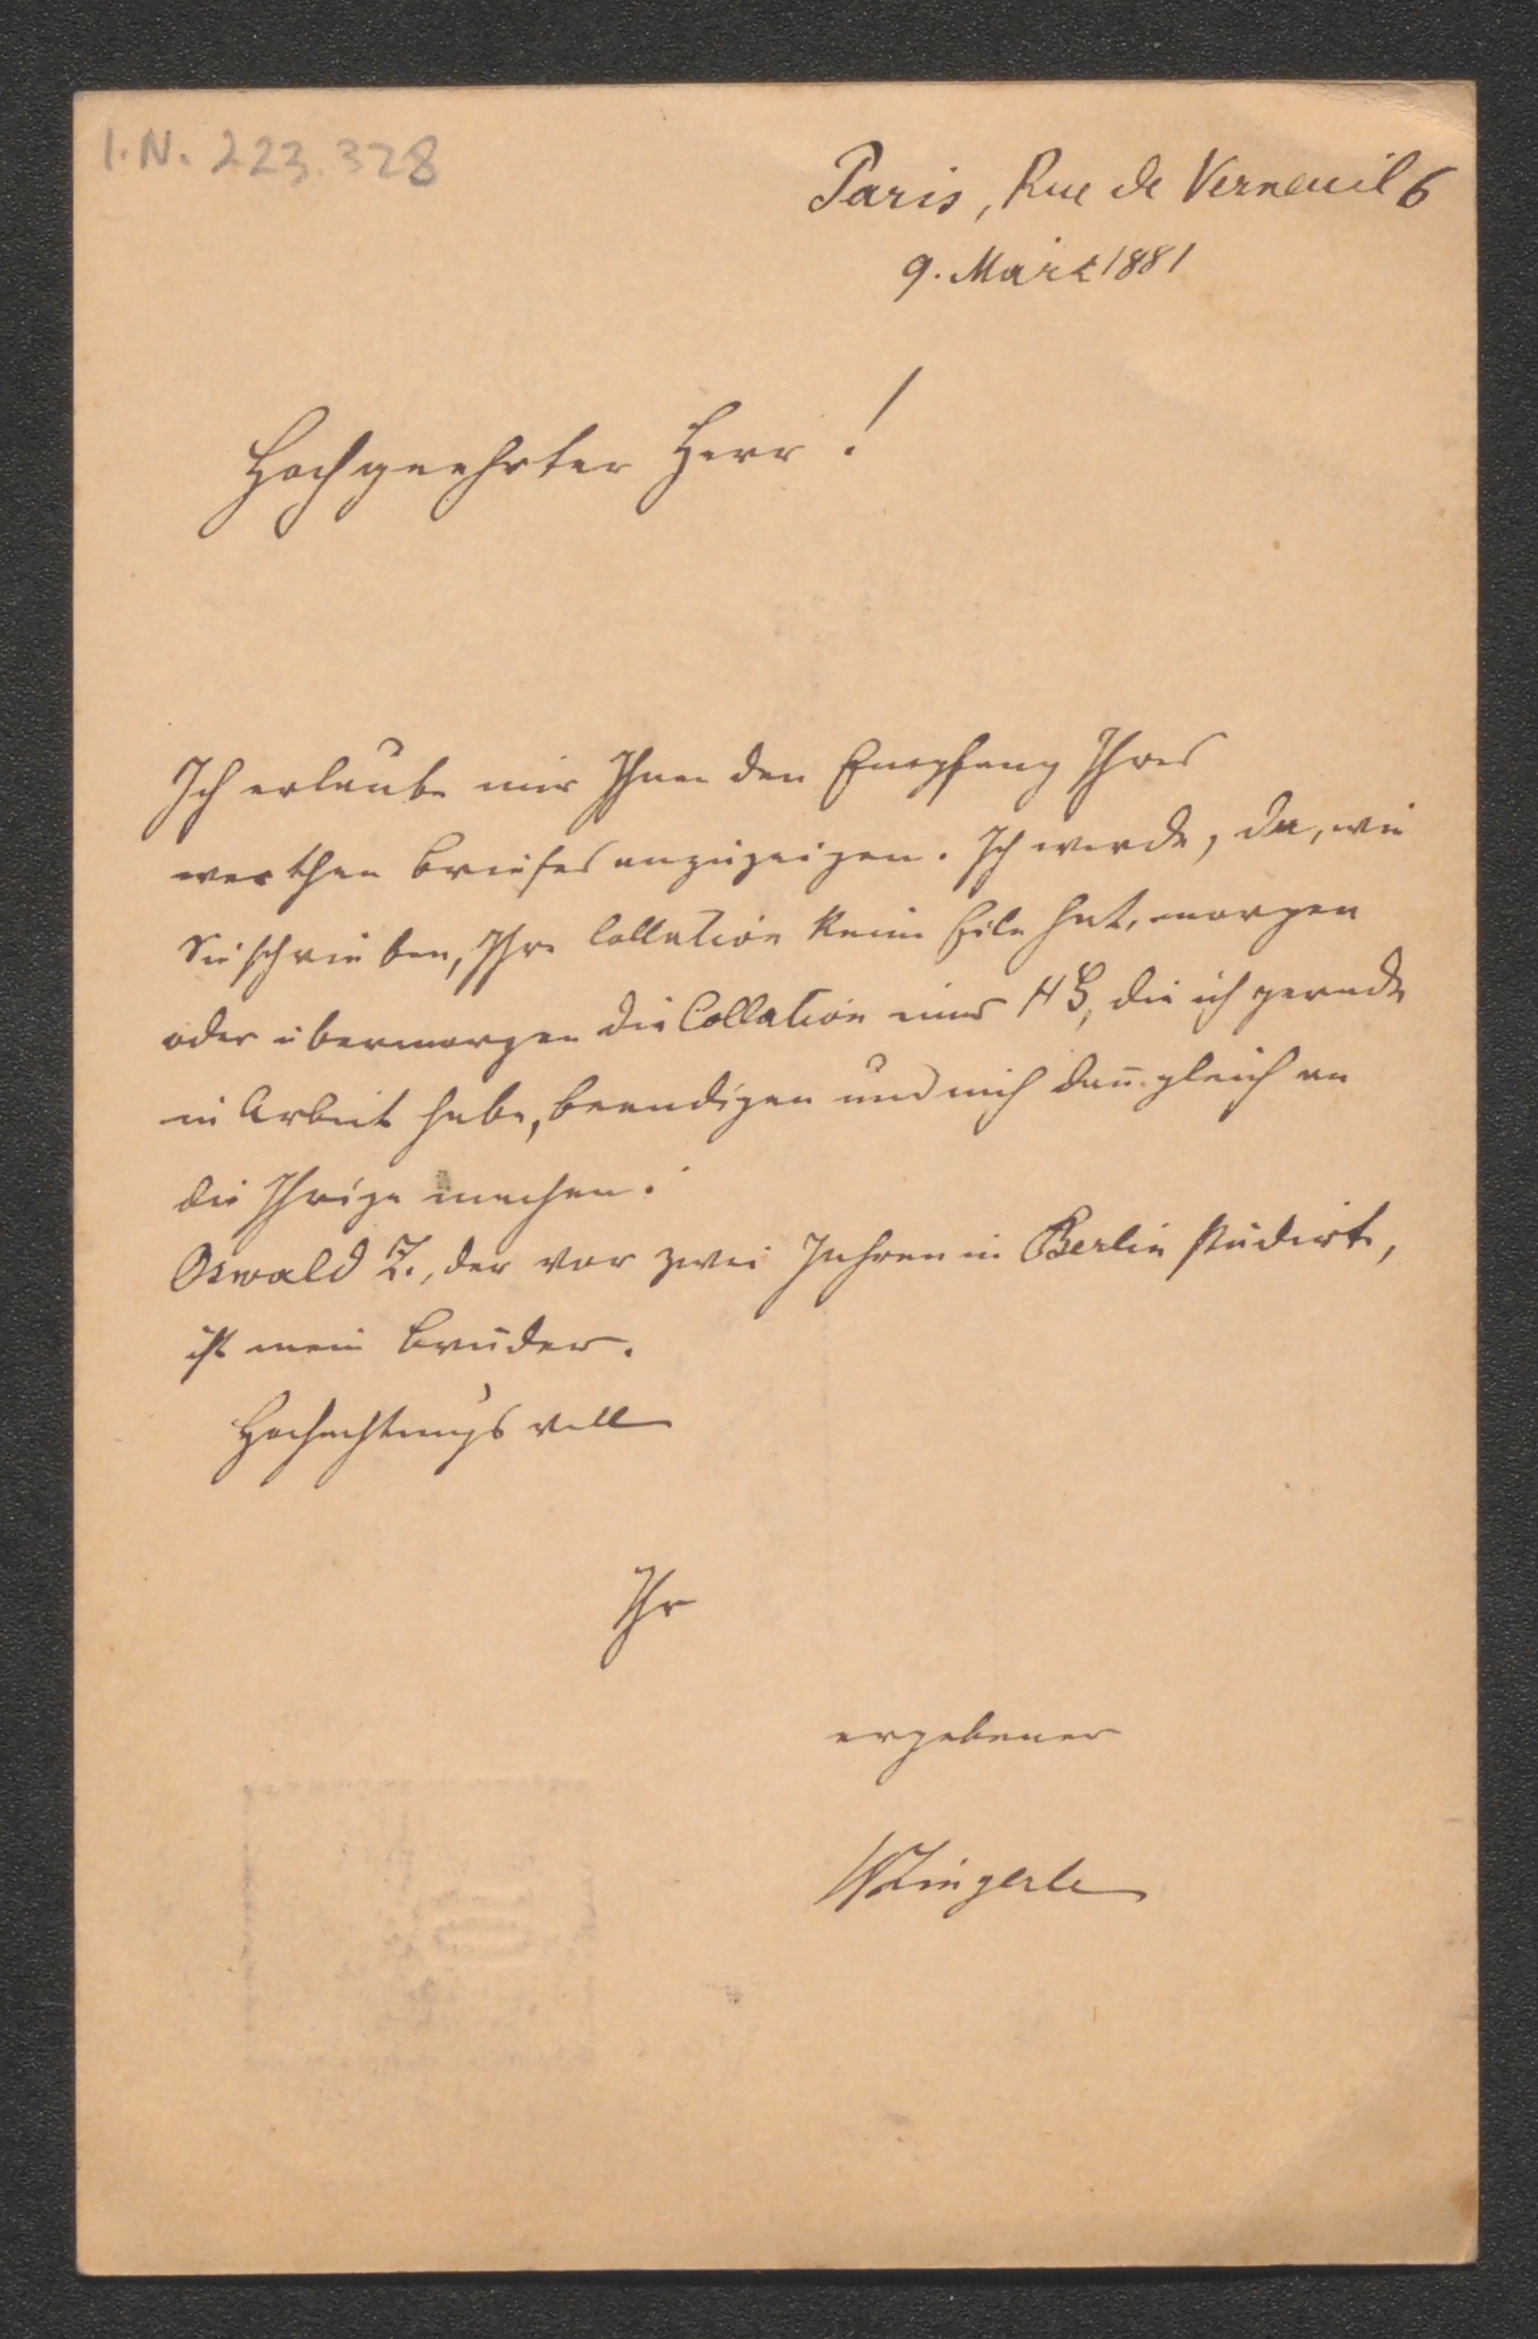 I.N. 223.328
Paris, Rue de Verneuil 6
9. März 1881
Hochgeehrter Herr!
Ich erlaube mir Ihnen den Empfang Ihres
werthen Briefes anzuzeigen. Ich werde, da, wie
Sie schrieben, Ihre Collation keine Eile hat, morgen
oder übermorgen die Collation einer HS, die ich gerade
in Arbeit habe, beendigen und mich dan̄ gleich an
die Ihrige machen.
Oswald Z., der vor zwei Jahren in Berlin studirte,
ist mein Bruder.
Hochachtungsvoll
Ihr
ergebener
WZingerle